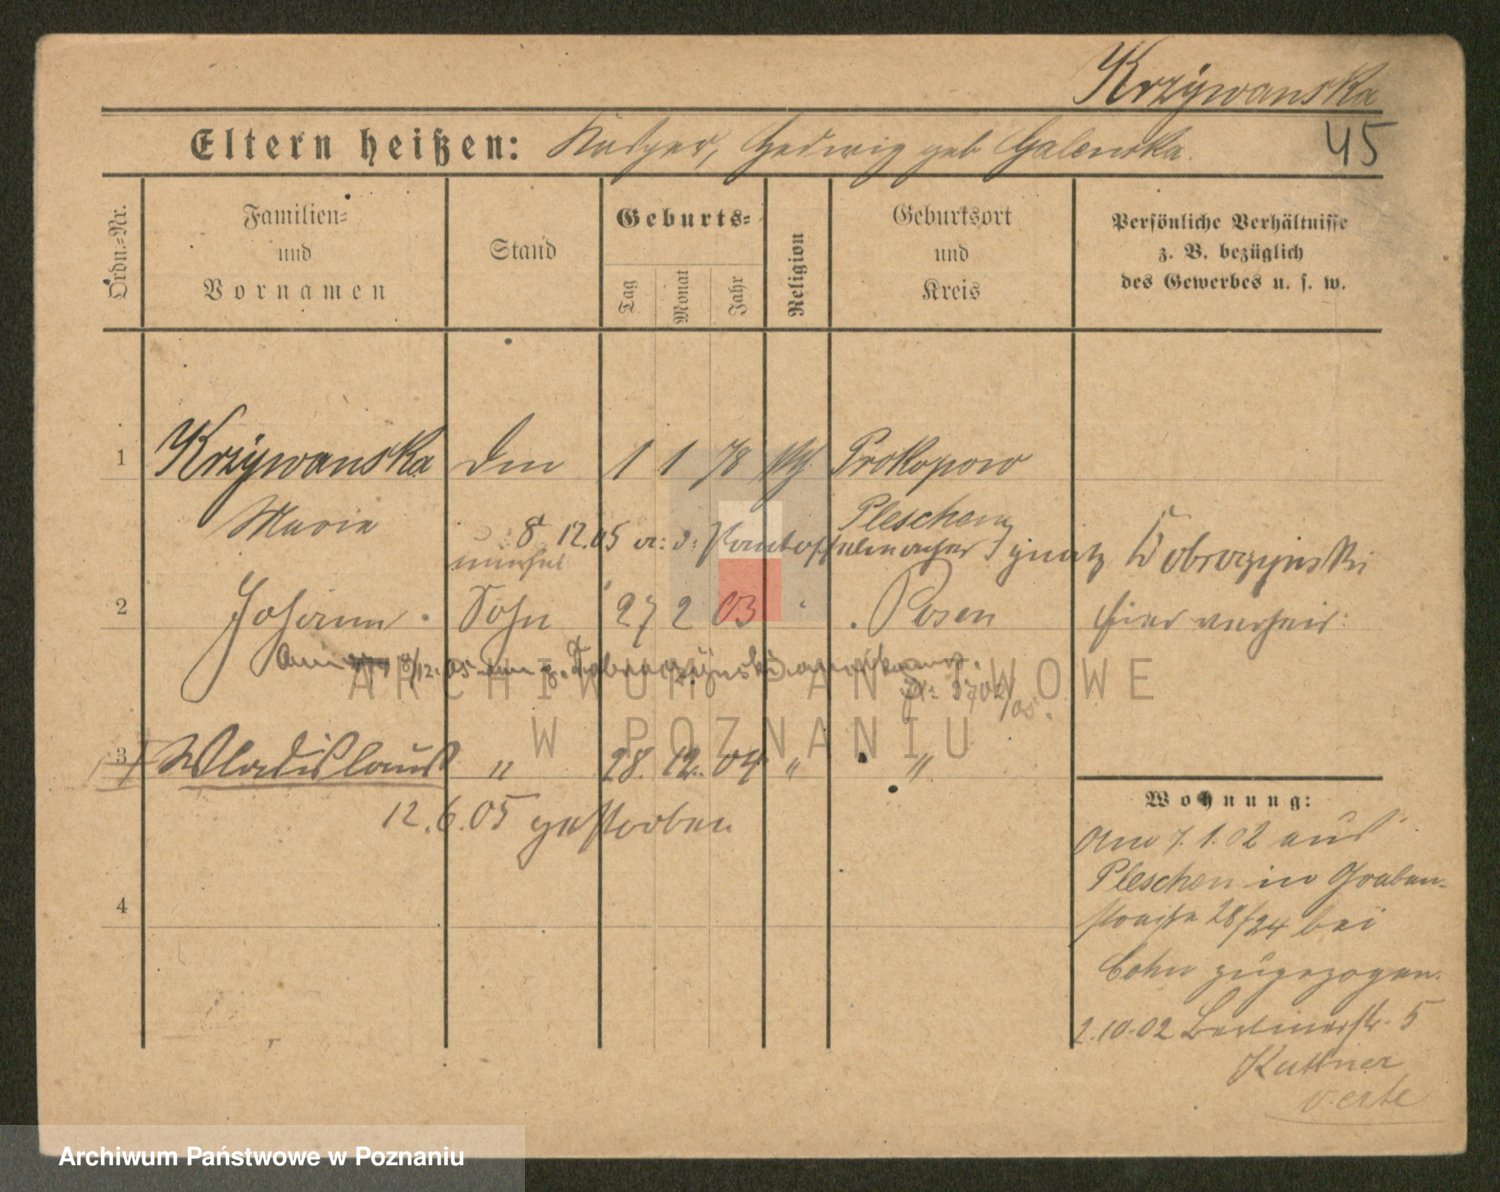 Krzywanska
45
Eltern heißen: Hedwig geb Galenska.
Ordn.=Nr.
Familien=
und
Vornamen
Stand
Geburts=
Tag
Monat
Jahr
Religion
Geburtsort
und
Kreis
Persönliche Verhältnisse
z. B. bezüglich
des Gewerbes u. s. w.
1 Krzywanska 1 1 78 Prokopow
Marie Pleschen
8 12.05 Ignatz Dobrozynski
unehel
2 Johann Sohn 27 2 03 Posen hier verheir:
8/12. 05
3702/05.
3 Wladislaus " 28. 12. 04 " "
12.6.05 gestorben
4
Wohnung:
Am 7.1.02 aus
Pleschen in Graben-
straße 28/24 bei
Cohn zugezogen.
2.10.02 Berlinerstr. 5
Kuttner
verte
ARCHIWUM PAŃSTWOWE
W POZNANIU
Archiwum Państwowe w Poznaniu